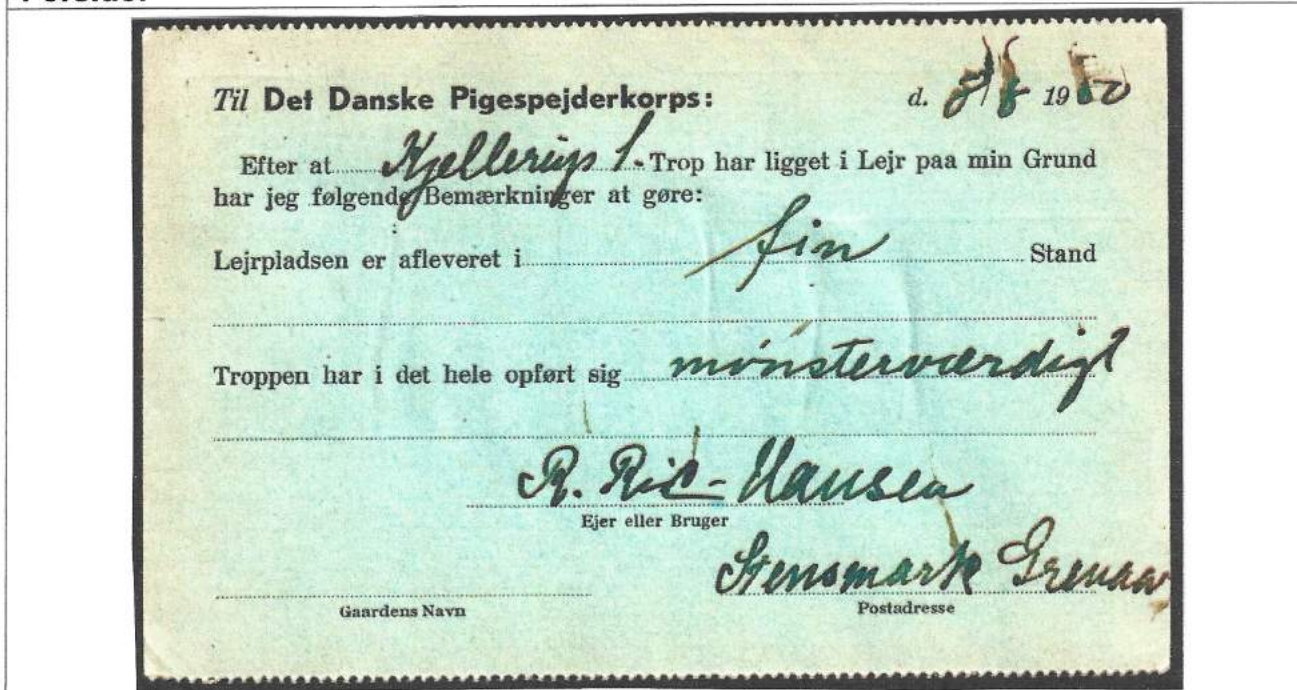 Til Det Danske Pigespejderkorps: d. 8/8 19
Efter at Kjellerups 1. Trop har ligget i Lejr paa min Grund
har jeg følgende Bemærkninger at gøre:
Lejrpladsen er afleveret i fin Stand
Troppen har i det hele opført sig mønsterværdigt
R. Hansen
Ejer eller Bruger
Stensmark Grenaa
Gaardens Navn Postadresse